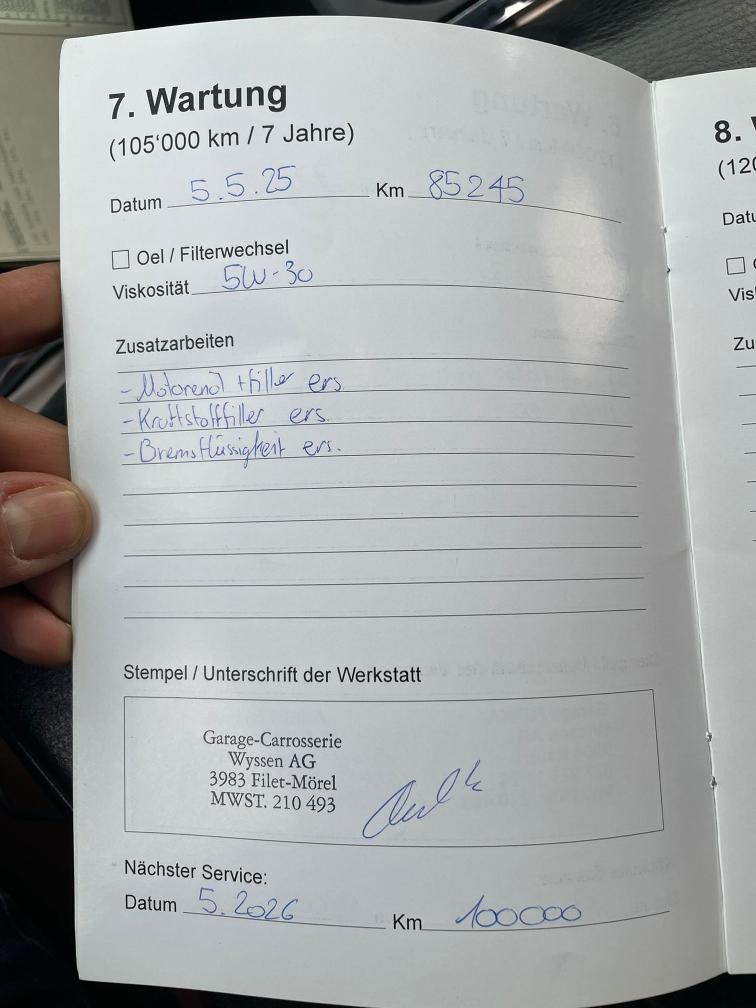 7. Wartung
(105'000 km / 7 Jahre)
Datum 5.5.25 Km 85245
Oel / Filterwechsel
Viskosität 5W-30
Zusatzarbeiten
- Motorenöl + filter ers.
- Kraftstofffilter ers.
- Bremsflüssigkeit ers.
Stempel / Unterschrift der Werkstatt
Garage-Carrosserie
Wyssen AG
3983 Filet-Mörel
MWST. 210 493
Nächster Service:
Datum 5.2026 Km 100000
8.
(120
Datu
Vis
Zu